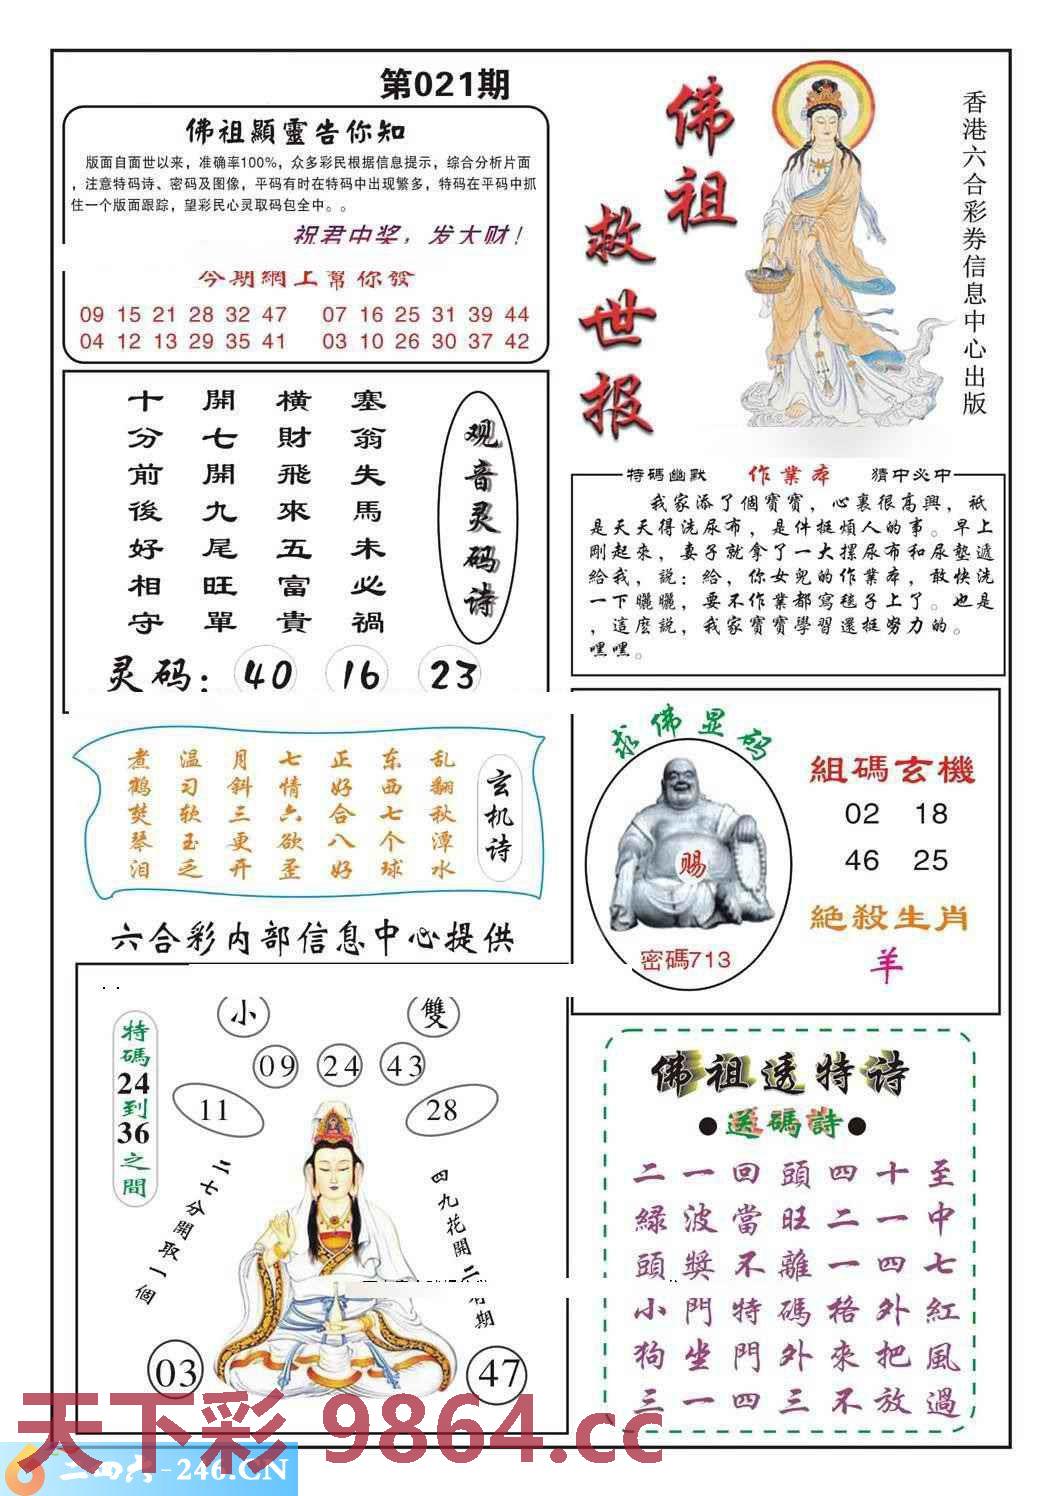 第021期
佛祖顯靈告你知
版面自面世以来，准确率100%，众多彩民根据信息提示，综合分析片面
，注意特码诗、密码及图像，平码有时在特码中出现繁多，特码在平码中抓
住一个版面跟踪，望彩民心灵取码包全中。。
祝君中奖，发大财！
今期網上幫你發
09 15 21 28 32 47 07 16 25 31 39 44
04 12 13 29 35 41 03 10 26 30 37 42
佛祖
救世报
香港六合彩券信息中心出版
观音灵码诗
塞翁失馬未必禍
橫財飛來五富貴
開七開九尾旺單
十分前後好相守
灵码：40 16 23
特碼幽默 作業本 猜中必中
我家添了個寶寶，心裏很高興，祇
是天天得洗尿布，是件挺煩人的事。早上
剛起來，妻子就拿了一大摞尿布和尿墊遞
給我，說：給，你女兒的作業本，敢快洗
一下曬曬，要不作業都寫毯子上了。也是
，這麽説，我家寶寶學習還挺努力的。
嘿嘿。
玄机诗
乱翻秋潭水
东西七个球
正好合八好
七情六欲歪
月斜三更开
温习软玉乏
煮鹤焚琴泪
求佛显码
赐
密碼713
組碼玄機
02 18
46 25
絕殺生肖
羊
六合彩内部信息中心提供
特碼24到36之間
小 雙
09 24 43
11 28
二七分開取一個
四九花開二
期
03 47
佛祖透特诗
●送碼詩●
二一回頭四十至
緑波當旺二一中
頭獎不離一四七
小門特碼格外紅
狗坐門外來把風
三一四三不放過
天下彩 9864.cc
二四六-246.CN